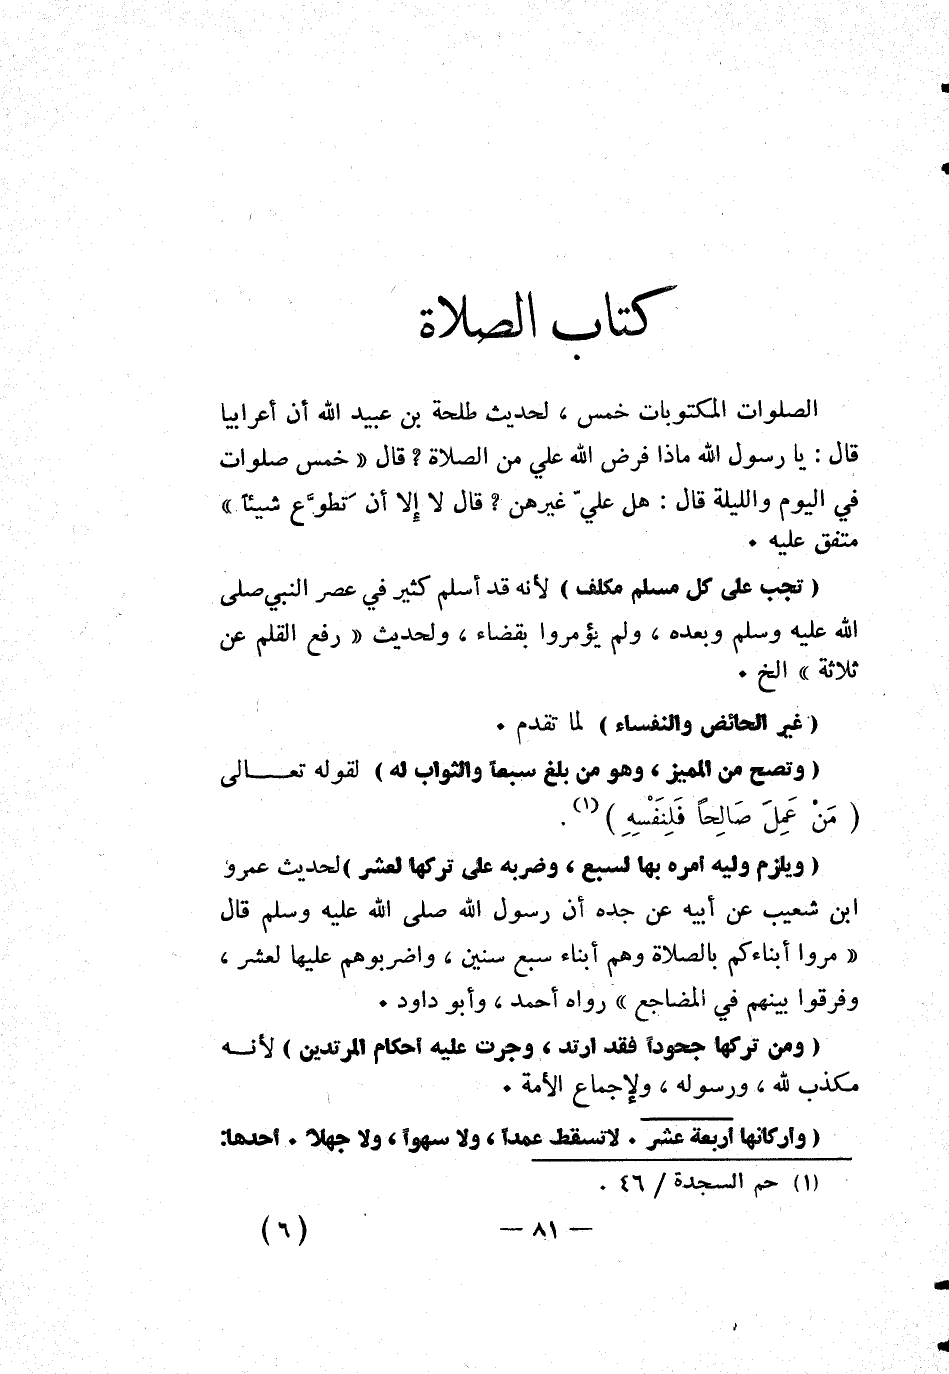 كتاب الصلاة
الصلوات المكتوبات خمس ، لحديث طلحة بن عبيد الله أن أعرابيا
قال : يا رسول الله ماذا فرض الله علي من الصلاة ? قال « خمس صلوات
في اليوم والليلة قال : هل عليّ غيرهن ? قال لا إلا أن تَطوَّع شيئاً »
متفق عليه .
( تجب على كل مسلم مكلف ) لأنه قد أسلم كثير في عصر النبي صلى
الله عليه وسلم وبعده ، ولم يؤمروا بقضاء ، ولحديث « رفع القلم عن
ثلاثة » الخ .
( غير الحائض والنفساء ) لما تقدم .
( وتصح من المميز ، وهو من بلغ سبعاً والثواب له ) لقوله تعـــالى
( مَنْ عَمِلَ صَالِحاً فَلِنَفْسِهِ ) (١) .
( ويلزم وليه امره بها لسبع ، وضربه على تركها لعشر ) لحديث عمرو
ابن شعيب عن أبيه عن جده أن رسول الله صلى الله عليه وسلم قال
« مروا أبناءكم بالصلاة وهم أبناء سبع سنين ، واضربوهم عليها لعشر ،
وفرقوا بينهم في المضاجع » رواه أحمد ، وأبو داود .
( ومن تركها جحوداً فقد ارتد ، وجرت عليه احكام المرتدين ) لأنــه
مكذب لله ، ورسوله ، ولإجماع الأمة .
( واركانها اربعة عشر . لاتسقط عمداً ، ولا سهواً ، ولا جهلاً . احدها:
(١) حم السجدة / ٤٦ .
— ٨١ —
(٦)